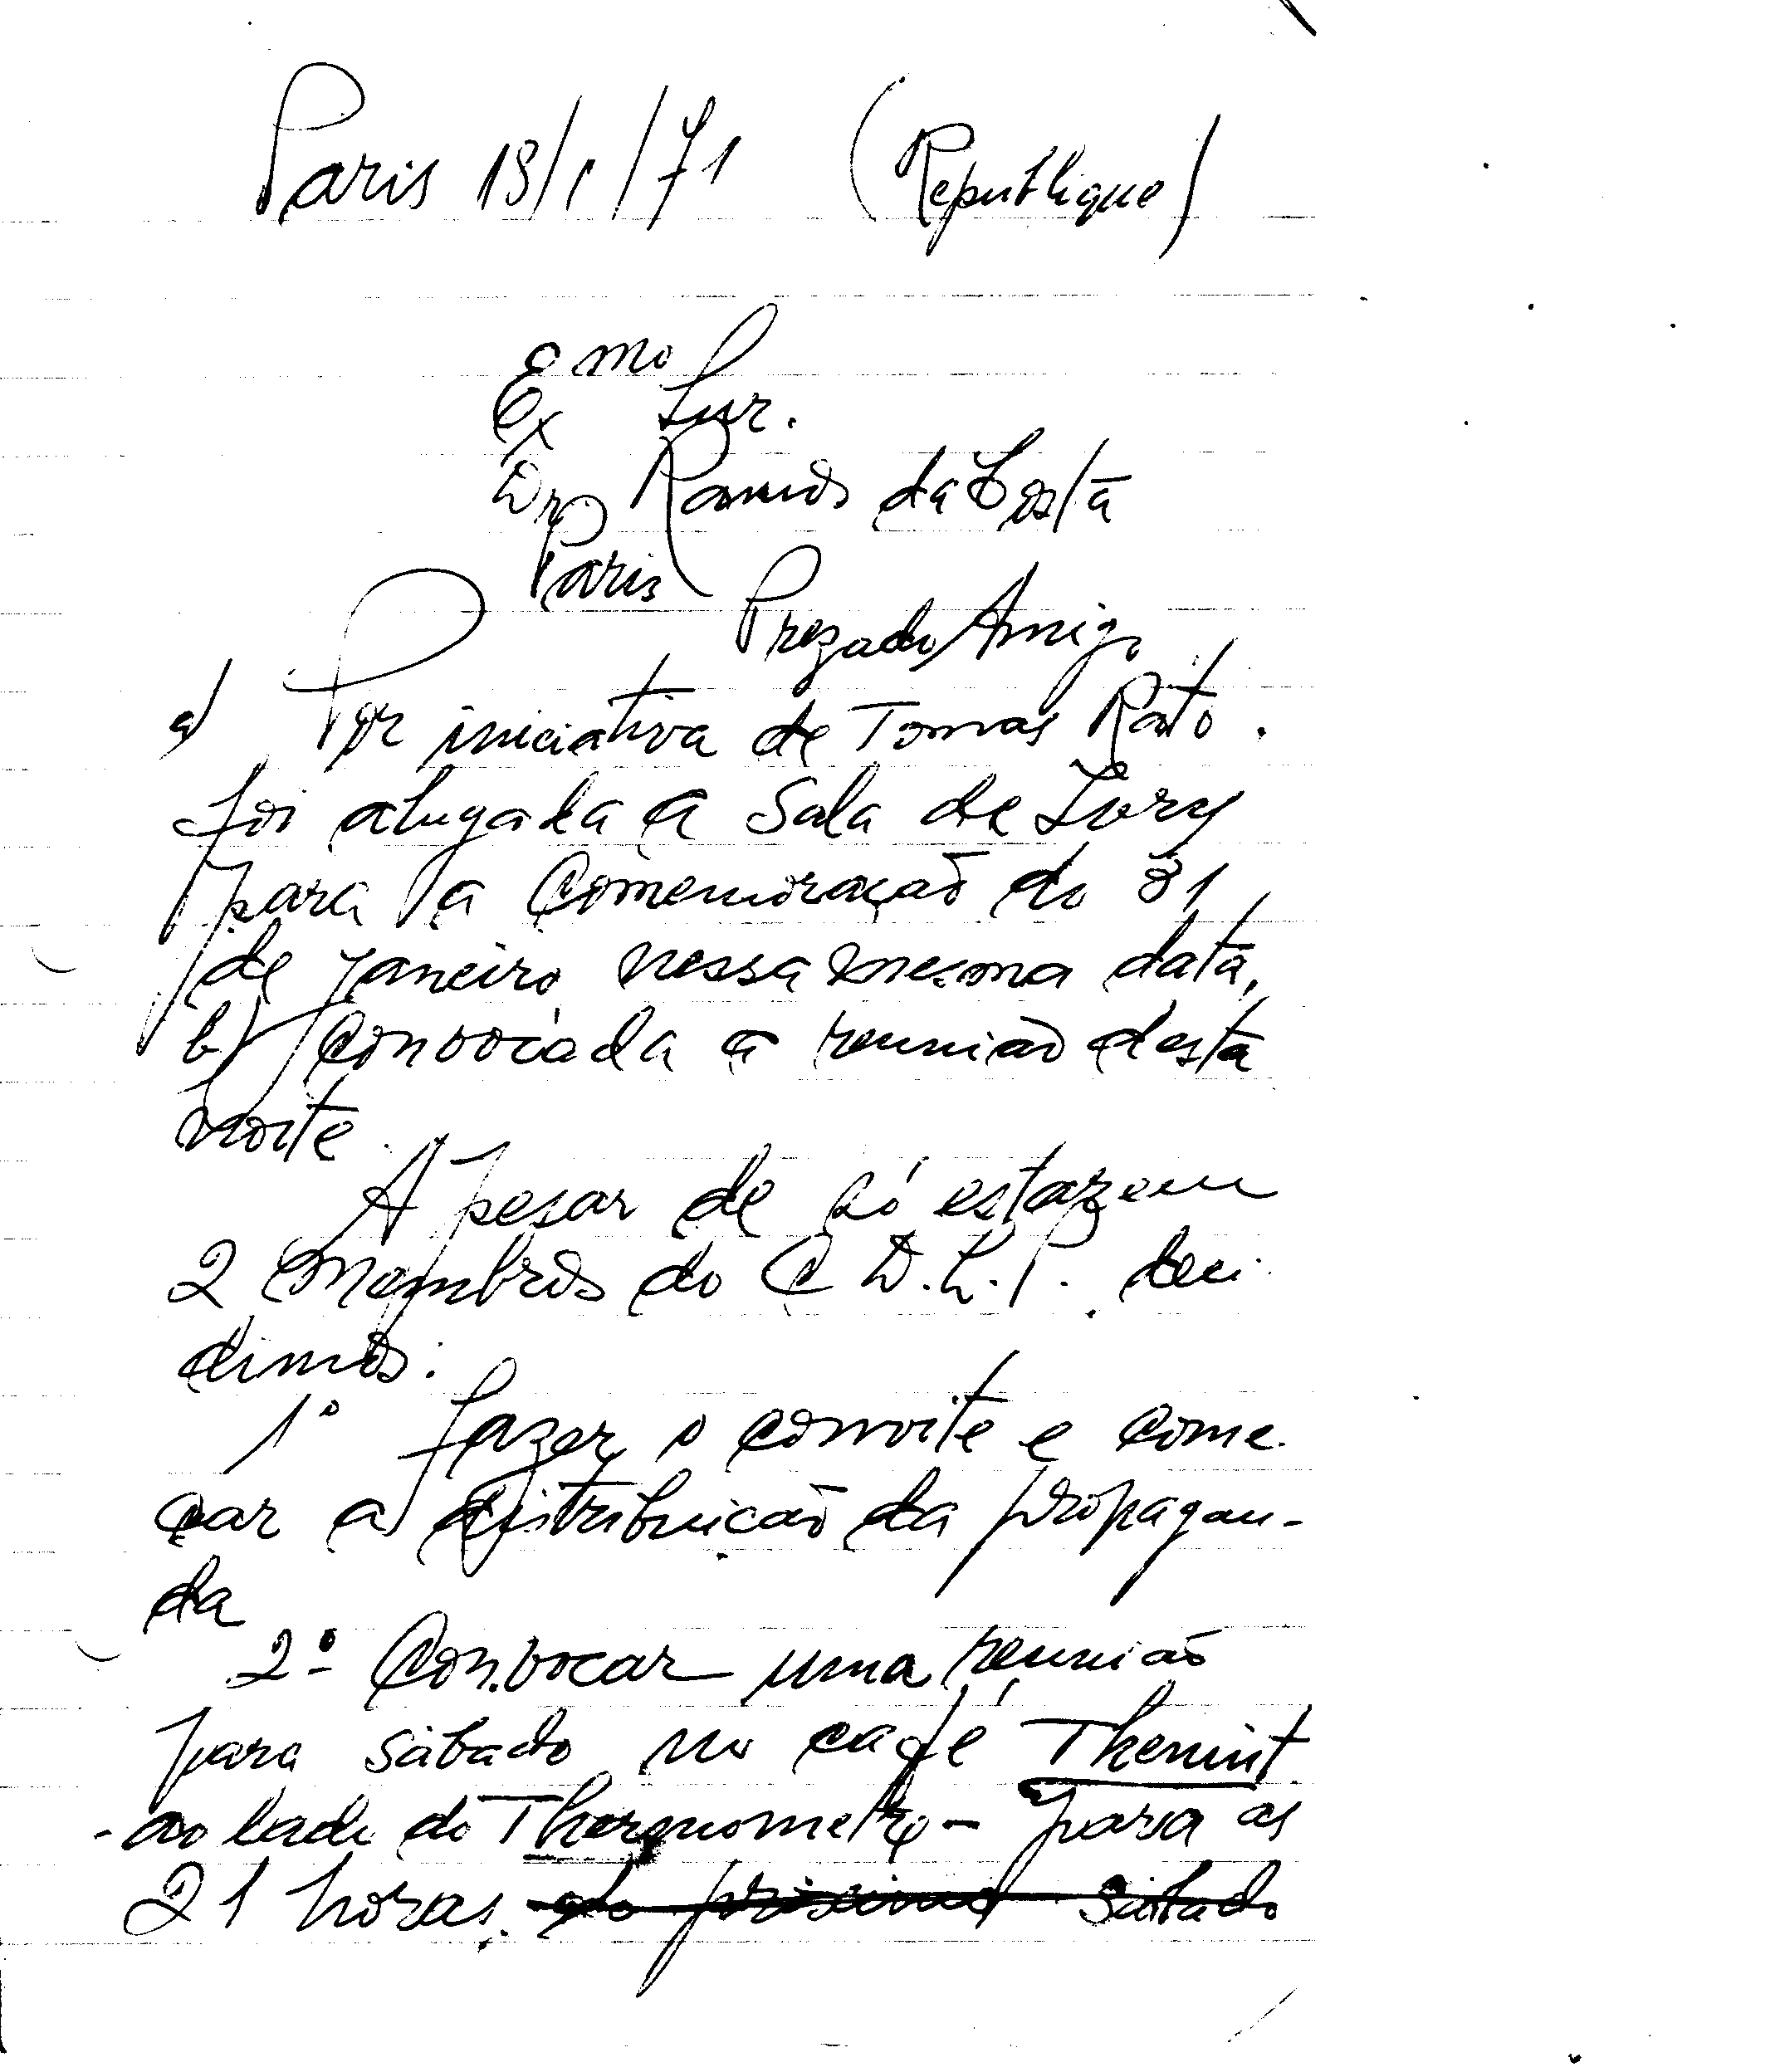 Paris 19/1/71 (Republique)
Exmo Snr.
Dr Ramos da Costa
Paris
Prezado Amigo
a) Por iniciativa de Tomas Rato.
foi alugada a Sala de Ivry
para a comemoração do 31
de janeiro nessa mesma data.
b) Convocada a reunião desta
noite
A pesar de só estarem
2 membros do C D.L.P. deci
dimos:
1º fazer o convite e come
çar a distribuição da propagan-
da
2º Convocar uma reunião
para sábado no café Thenint
- ao lado do Thermometro - para as
21 horas. do próximo sabado